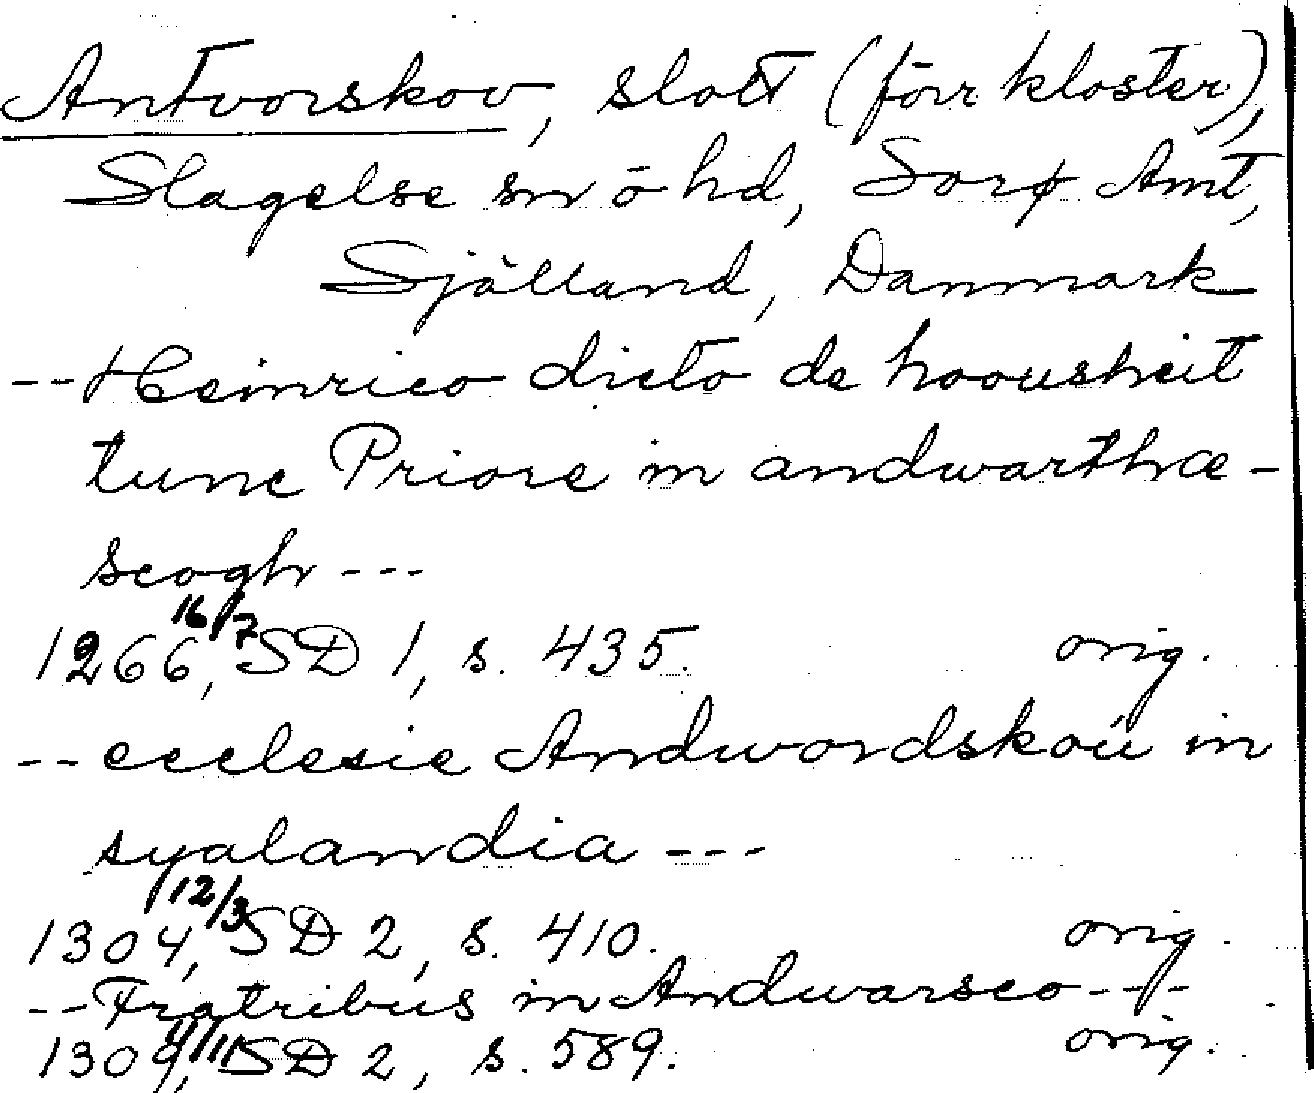 Antvorskov, slott (förr kloster),
Slagelse sn o hd, Sorø Amt,
Sjålland, Danmark
-- Heinrico dicto de hoousheit
tunc Priore in andwarthæ-
scogh ---
1266 16/7, SD 1, s. 435. orig.
-- ecclesie Andwordskou in
syalandia ---
1304 12/3, SD 2, s. 410. orig.
-- Fratribus in Andwarsco ---
1309, SD 2, s. 589. orig.